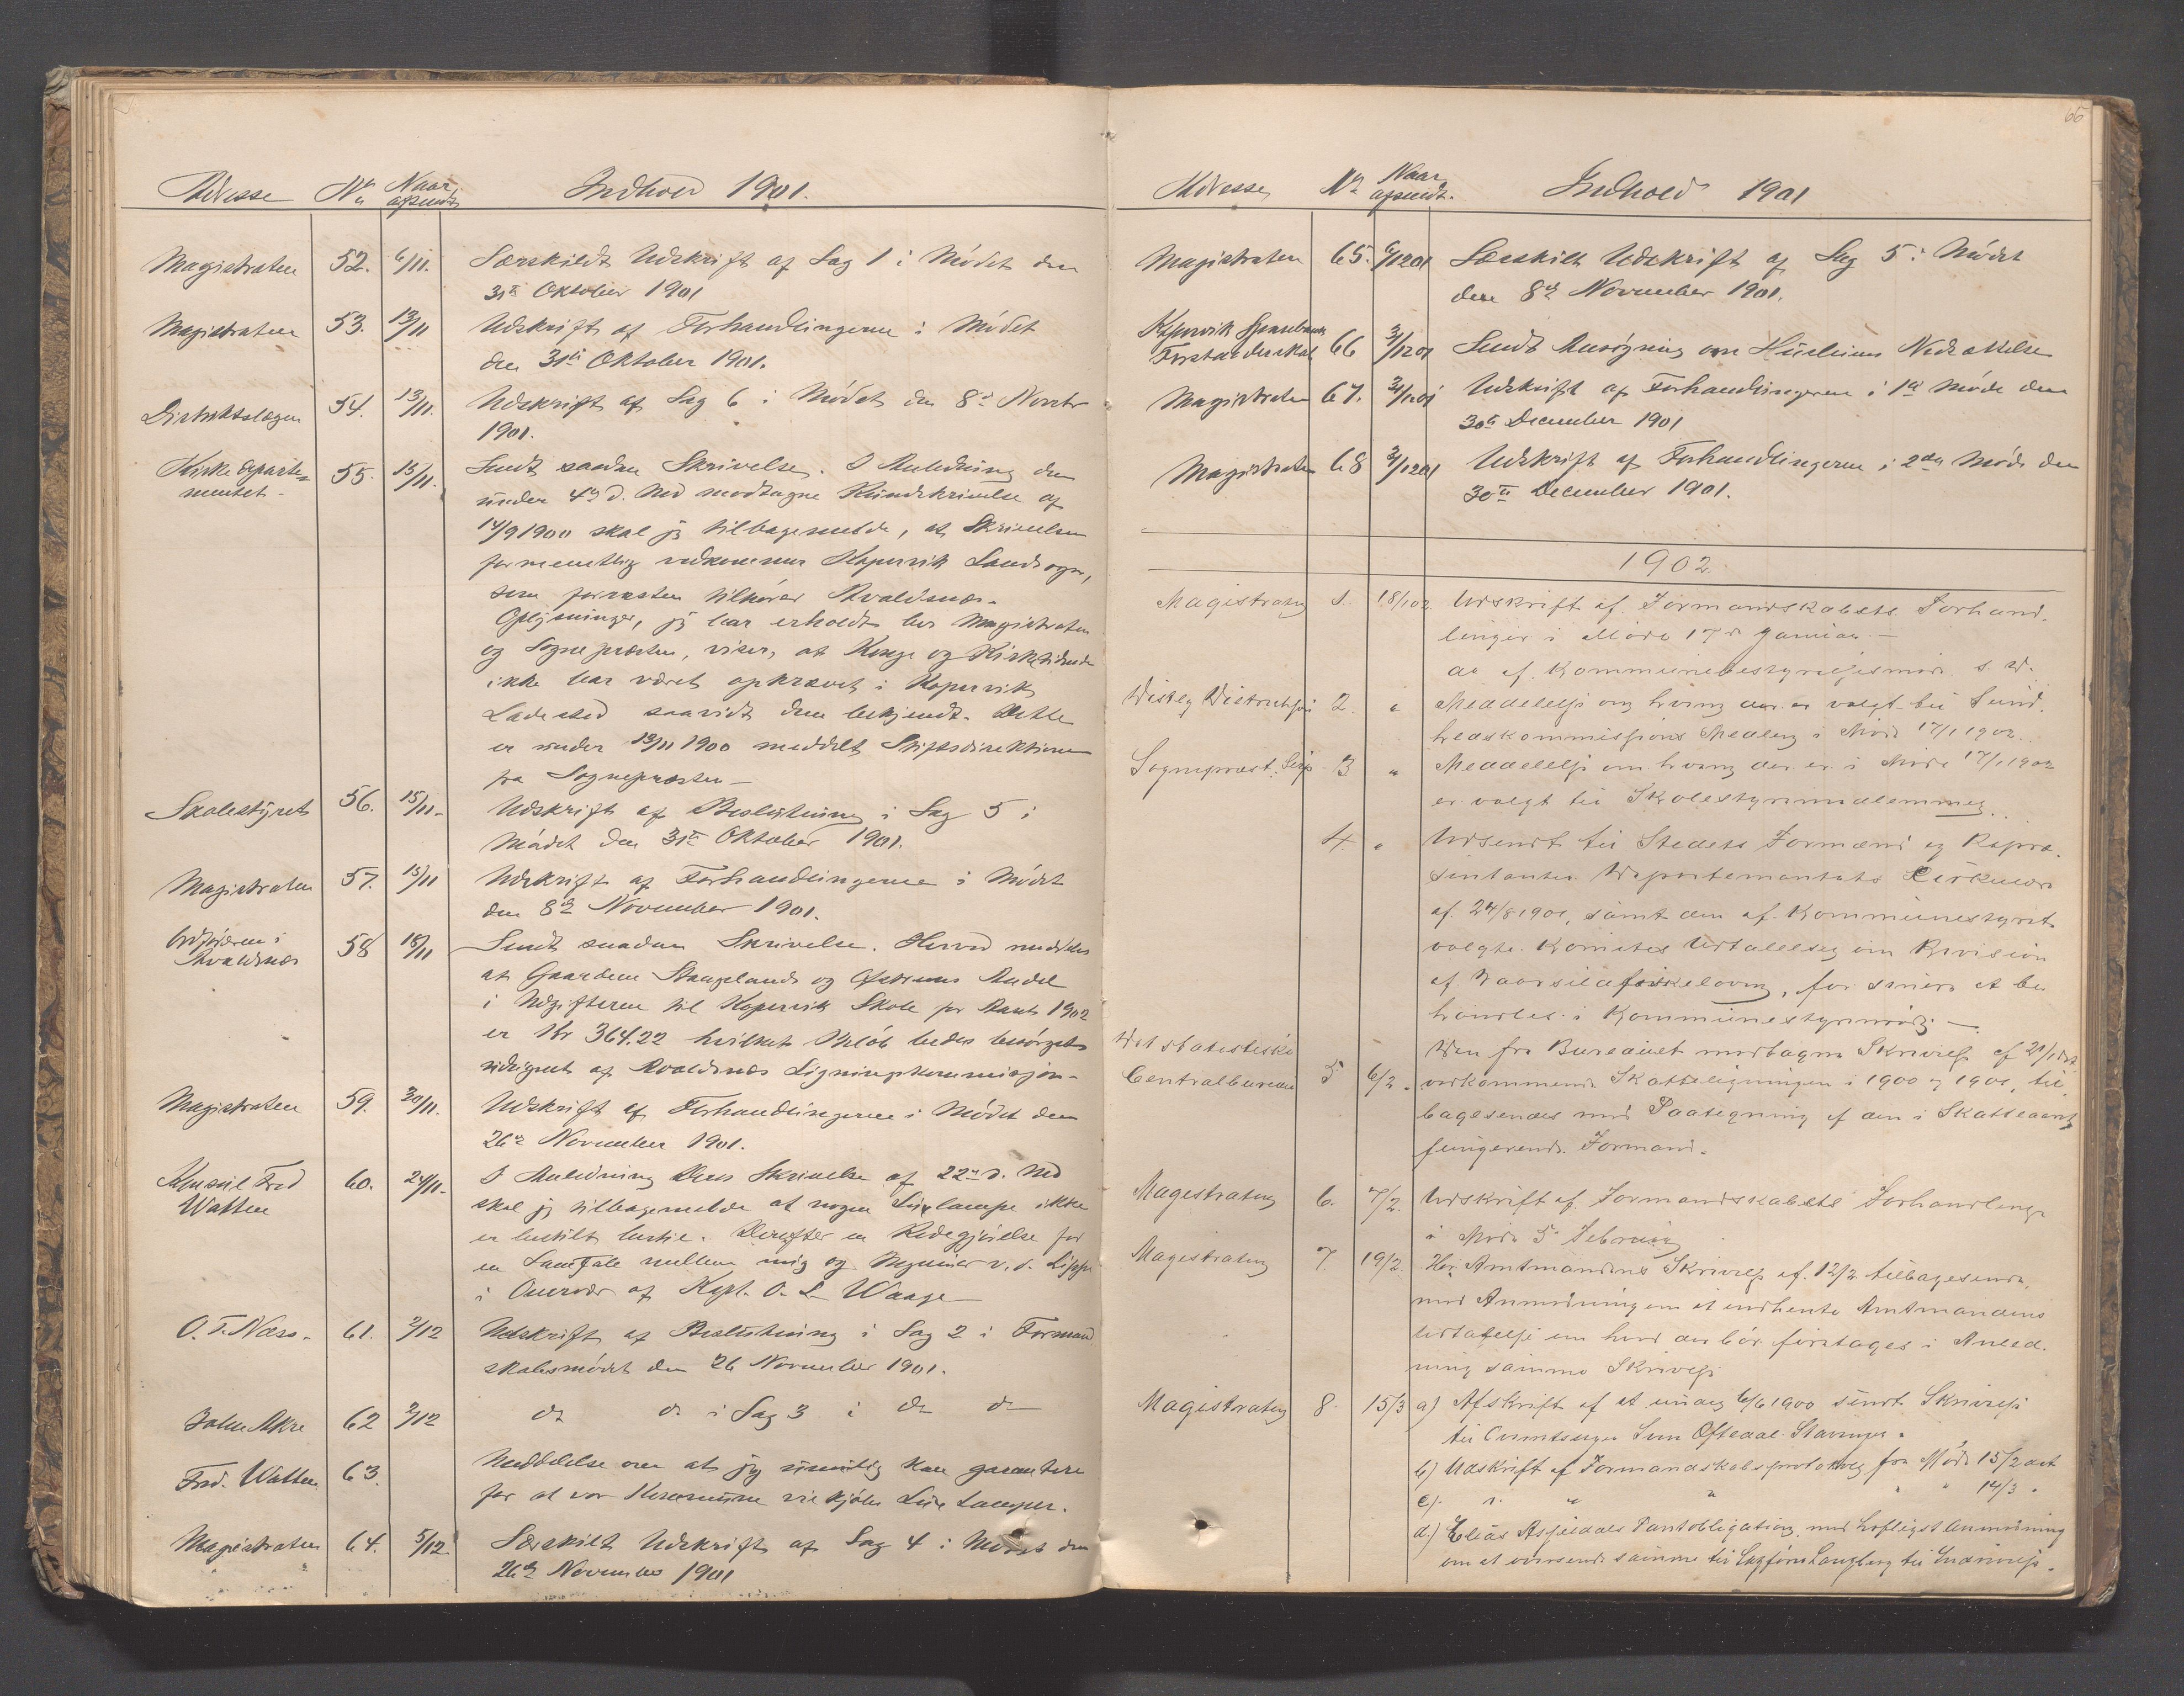 Adresse No Naar afsendt Indhold 1901.
Magistraten 52. 6/11. Særskildt Udskrift af Sag 1 i Mødet den
31te Oktober 1901
Magistraten 53. 13/11 Udskrift af Forhandlingerne i Mødet
den 31te Oktober 1901.
Distriktslægen 54. 13/11. Udskrift af Sag 6 i Mødet den 8de Novbr
1901.
Kirkedeparte- 55. 15/11. Sendt saadan Skrivelse. I Anledning den
mentet under 4de d. Md modtagne Rundskrivelse af
14/9 1900 skal jeg tilbagemelde, at Skrivelsen
formentlig vedkommer Kopervik Landsogn,
som forresten tilhører Avaldsnæs.
Oplysninger, jeg har erholdt hos Magistraten
og Sognepræsten, viser, at Konge og Kirketiende
ikke har været opkrævet i Kopervik
Ladested saavidt dem bekjendt. Dette
er under 19/11 1900 meddelt Stiftsdirektionen
fra Sognepræsten
Skolestyret 56. 15/11. Udskrift af Beslutning i Sag 5 i
Mødet den 31te Oktober 1901.
Magistraten 57. 15/11 Udskrift af Forhandlingerne i Mødet
den 8de November 1901.
Ordføreren i
Avaldsnæs 58 18/11 Sendt saadan Skrivelse. Herved meddeles
at Gaardene Stangelands og Østrems Andel
i Udgifterne til Kopervik Skole for Aaret 1902
er Kr 364.22 hvilket Beløb bedes besørget
udlignet af Avaldsnæs Ligningskommisjon.
Magistraten 59. 30/11. Udskrift af Forhandlingerne i Mødet den
26de November 1901.
Konsul Fred 60. 24/11. I Anledning Deres Skrivelse af 22de d. Md
Watten skal jeg tilbagemelde at nogen Luxlampe ikke
er bestilt hertil. Derefter en Redegjørelse for
en Samtale mellem mig og v. d. Lippe
i Overvær af Kapt. O. L. Waage
O. T. Næss. 61. 2/12 Udskrift af Beslutning i Sag 2 i Formand
skabsmødet den 26 November 1901.
John Akre 62 2/12 do do i Sag 3 i do do
Fred. Watten 63. Meddelelse om at jeg umulig kan garantere
for at vor Kommune vil kjøbe Lux Lamper.
Magistraten 64. 5/12 Særskilt Udskrift af Sag 4 i Mødet den
26de November 1901
66
Adresse No Naar afsendt. Indhold 1901
Magistraten 65. 6/12 01 Særskilt Udskrift af Sag 5 i Mødet
den 8de November 1901.
Kopervik Sparebank
Forstanderskab 66 31/12 01 Sendt Ansøgning om Husleiens Nedsættelse
Magistraten 67. 31/12 01 Udskrift af Forhandlingerne i 1ste Møde den
30te December 1901
Magistraten 68 31/12 01 Udskrift af Forhandlingerne i 2det Møde den
30te December 1901.
1902.
Magistraten 1. 18/1 02 Udskrift af Formandskabets Forhand-
linger i Møde 17de Januar.
do af Kommunebestyrelsesmøde s. D.
2. " Meddelelse om hvem der er valgt til Sund-
hedskommissions Medlem i Møde 17/1 1902.
Sognepræst 3 " Meddelelse om hvem der er i Møde 17/1 1902
er valgt til Skolestyremedlemmer.
4 " Udsendt til Stedets Formænd og Repræ-
sentanter Departementets Cirkulær
af 24/8 1901, samt den af Kommunestyret
valgte Komites Udtalelse om Revision
af Vaarsildfiskeloven, for siden at be-
handles i Kommunestyremøde.
Det statistiske Den fra Bureauet modtagne Skrivelse af 21/1
Centralbureau 5 6/2. vedkommende Skatteligningen i 1900 og 1901, til
bagesendes med Paategning af den i Skatteaaret
fungerende Formand.
Magistraten 6. 7/2. Udskrift af Formandskabets Forhandlinger
i Møde 5 Februar
Magistraten 7 19/2. Hr. Amtmandens Skrivelse af 12/2 tilbagesendes
med Anmodning om at indhente Amtmandens
Udtalelse om hvad der bør foretages i Anled-
ning samme Skrivelse
Magistraten 8. 15/3 a) Afskrift af et under 6/6 1900 sendt Skrivelse
til Oftedal Stavanger.
b) Udskrift af Formandskabsprotokol fra Møde 15/2 det
c) " " " " " 14/3 "
d.) Elias Pantobligation, med høfligst Anmodning
om at oversende samme til Sagfører Langberg til